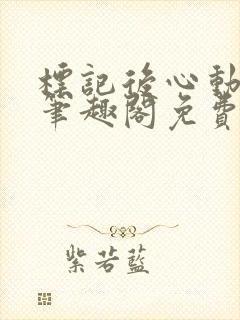 標記後心動
筆趣閣免費
紫若藍